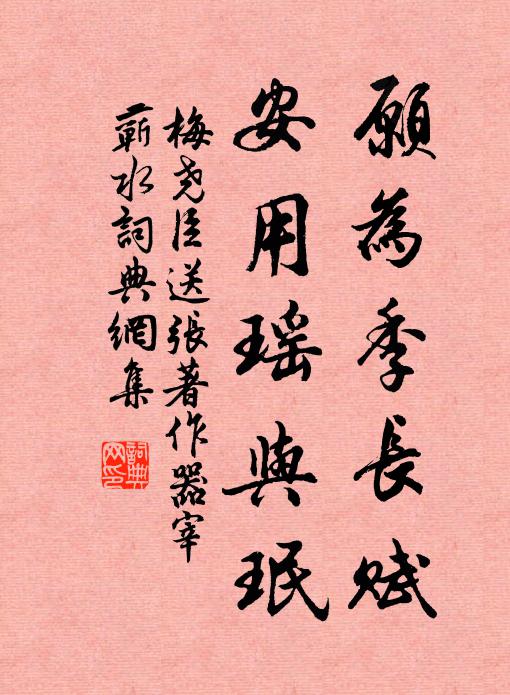 願為季長賦
安用瑶與珉
梅尧臣送張著作器宰
蘄水詞典網集
詞典网印